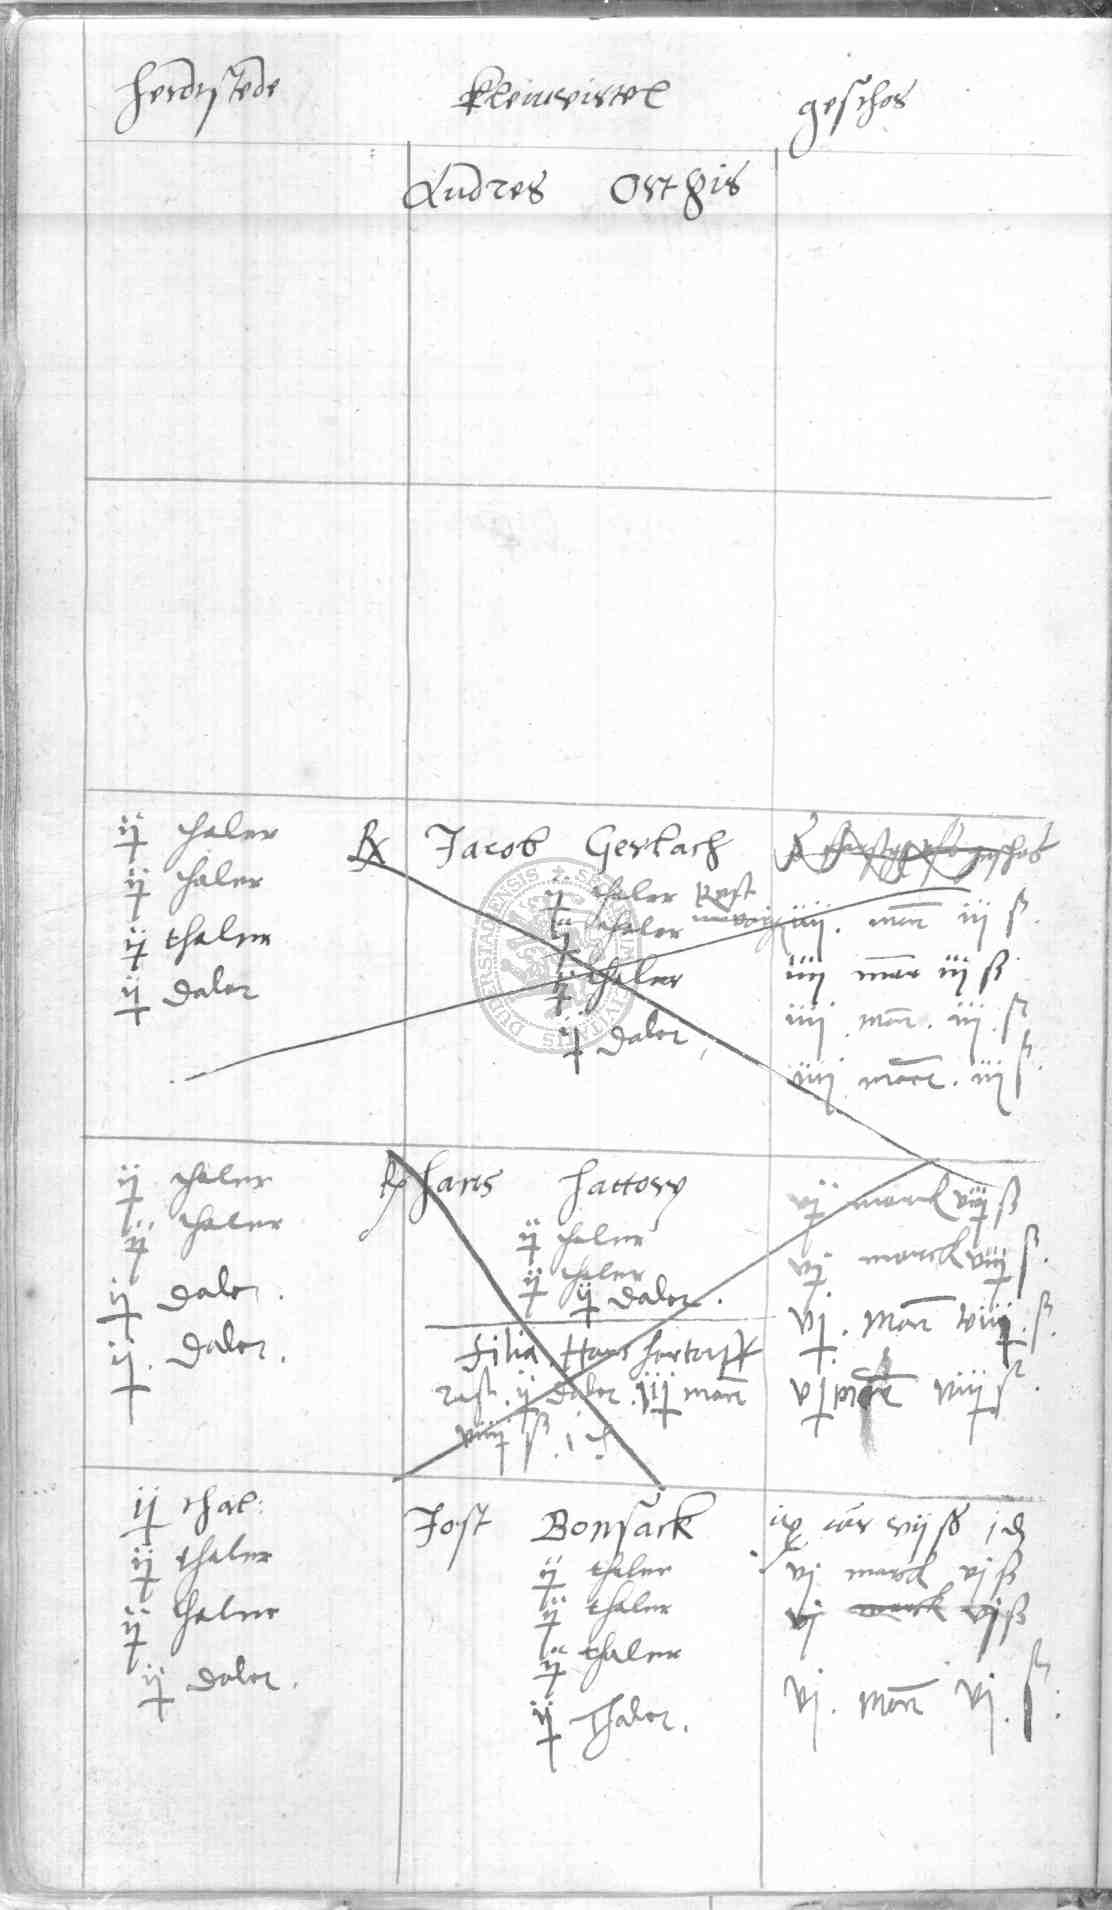 herdtstede kleinvirtel geschos
Andres Ortgis
ij thaler
ij thaler
ij thaler
ij daler
Jacob Gerlach
ij thaler Rest
ij thaler
ij thaler
ij daler
geschos
iiij marc iij ß
iiij marc iij ß
iiij marc iij ß
iiij marc iij ß
ij thaler
ij thaler
ij daler
ij daler
Hans hattorp
ij thaler
ij thaler
ij daler
filia Hans hattorpff
rest ij daler iij marc
viij ß i
vj marck viij ß
vj marck viij ß
vj marc viij ß
vj marc viij ß
ij thal:
ij thaler
ij thaler
ij daler
Jost Bonsack
ij thaler
ij thaler
ij thaler
ij Thaler
ix mar vij ß j d
vj marck vj ß
vj marck vj ß
vj marc vj ß
SIGILLVM CIVITATIS DUDERSTADENSIS